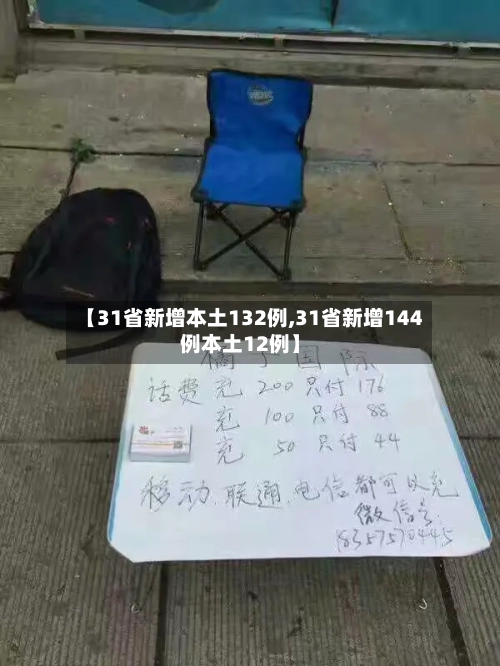 【31省新增本土132例,31省新增144
例本土12例】
国际
话费充 200 只付 176
充 100 只付 88
充 50 只付 44
移动.联通.电信都可以充
微信号
18357570445